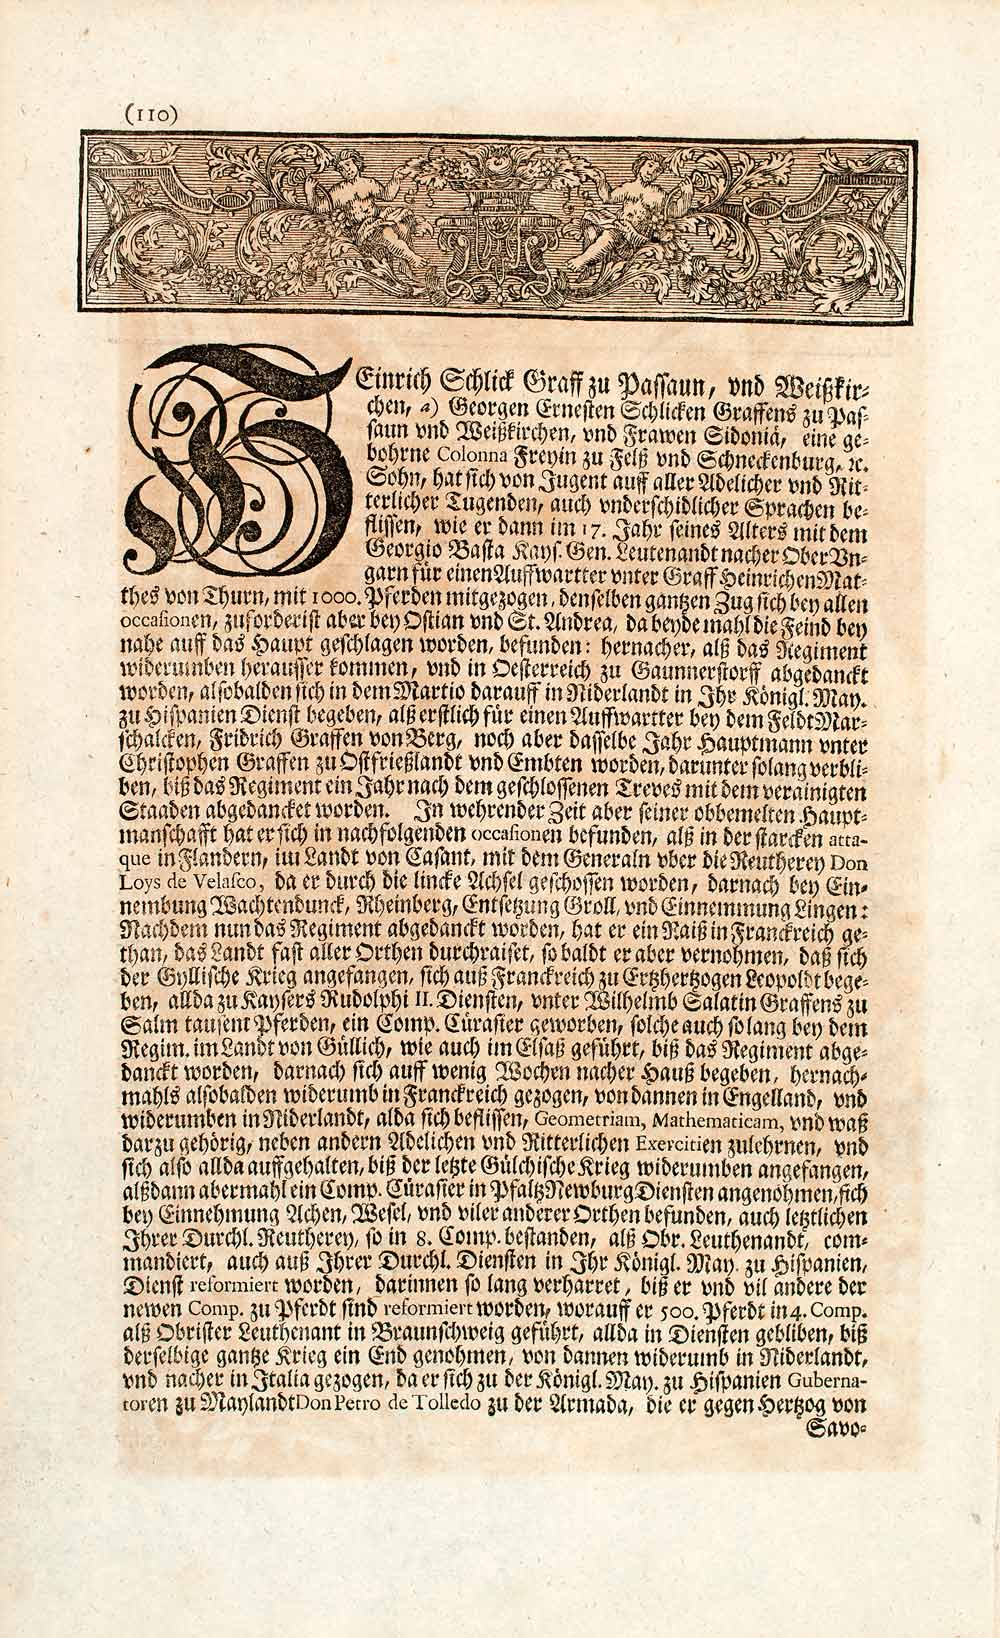 (110)
HEinrich Schlick Graff zu Passaun, vnd Weißkir-
chen, a) Georgen Ernesten Schlicken Graffens zu Pas-
saun vnd Weißkirchen, vnd Frawen Sidoniä, eine ge-
bohrne Colonna Freyin zu Felß vnd Schneckenburg, ꝛc.
Sohn, hat sich von Jugent auff aller Adelicher vnd Rit-
terlicher Tugenden, auch vnderschidlicher Sprachen be-
flissen, wie er dann im 17. Jahr seines Alters mit dem
Georgio Basta Kays. Gen. Leutenandt nacher Ober Vn-
garn für einen Auffwartter vnter Graff Heinrichen Mat-
thes von Thurn, mit 1000. Pferden mitgezogen, denselben gantzen Zug sich bey allen
occasionen, zuforderist aber bey Ostian vnd St. Andrea, da beyde mahl die Feind bey
nahe auff das Haupt geschlagen worden, befunden: hernacher, alß das Regiment
widerumben herausser kommen, vnd in Oesterreich zu Gaunnerstorff abgedanckt
worden, alsobalden sich in dem Martio darauff in Niderlandt in Ihr Königl. May.
zu Hispanien Dienst begeben, alß erstlich für einen Auffwartter bey dem Feldt Mar-
schalcken, Fridrich Graffen von Berg, noch aber dasselbe Jahr Hauptmann vnter
Christophen Graffen zu Ostfrießlandt vnd Embten worden, darunter solang verbli-
ben, biß das Regiment ein Jahr nach dem geschlossenen Treves mit dem verainigten
Staaden abgedancket worden. In wehrender Zeit aber seiner obbemelten Haupt-
manschafft hat er sich in nachfolgenden occasionen befunden, alß in der starcken atta-
que in Flandern, im Landt von Casant, mit dem Generaln vber die Reutherey Don
Loys de Velasco, da er durch die lincke Achsel geschossen worden, darnach bey Ein-
nembung Wachtendunck, Rheinberg, Entsetzung Groll, vnd Einnemmung Lingen:
Nachdem nun das Regiment abgedanckt worden, hat er ein Raiß in Franckreich ge-
than, das Landt fast aller Orthen durchraiset, so baldt er aber vernohmen, daß sich
der Gyllische Krieg angefangen, sich auß Franckreich zu Ertzhertzogen Leopoldt bege-
ben, allda zu Kaysers Rudolphi II. Diensten, vnter Wilhelmb Salatin Graffens zu
Salm tausent Pferden, ein Comp. Cürasier geworben, solche auch so lang bey dem
Regim. im Landt von Güllich, wie auch im Elsaß geführt, biß das Regiment abge-
danckt worden, darnach sich auff wenig Wochen nacher Hauß begeben, hernach-
mahls alsobalden widerumb in Franckreich gezogen, von dannen in Engelland, vnd
widerumben in Niderlandt, alda sich beflissen, Geometriam, Mathematicam, vnd waß
darzu gehörig, neben andern Adelichen vnd Ritterlichen Exercitien zulehrnen, vnd
sich also allda auffgehalten, biß der letzte Gülchische Krieg widerumben angefangen,
alßdann abermahl ein Comp. Cürasier in Pfaltz Newburg Diensten angenohmen, sich
bey Einnehmung Achen, Wesel, vnd viler anderer Orthen befunden, auch letztlichen
Ihrer Durchl. Reutherey, so in 8. Comp. bestanden, alß Obr. Leuthenandt, com-
mandiert, auch auß Ihrer Durchl. Diensten in Ihr Königl. May. zu Hispanien,
Dienst reformiert worden, darinnen so lang verharret, biß er vnd vil andere der
newen Comp. zu Pferdt sind reformiert worden, worauff er 500. Pferdt in 4. Comp.
alß Obrister Leuthenant in Braunschweig geführt, allda in Diensten gebliben, biß
derselbige gantze Krieg ein End genohmen, von dannen widerumb in Niderlandt,
vnd nacher in Italia gezogen, da er sich zu der Königl. May. zu Hispanien Guberna-
toren zu Maylandt Don Petro de Tolledo zu der Armada, die er gegen Hertzog von
Savo-